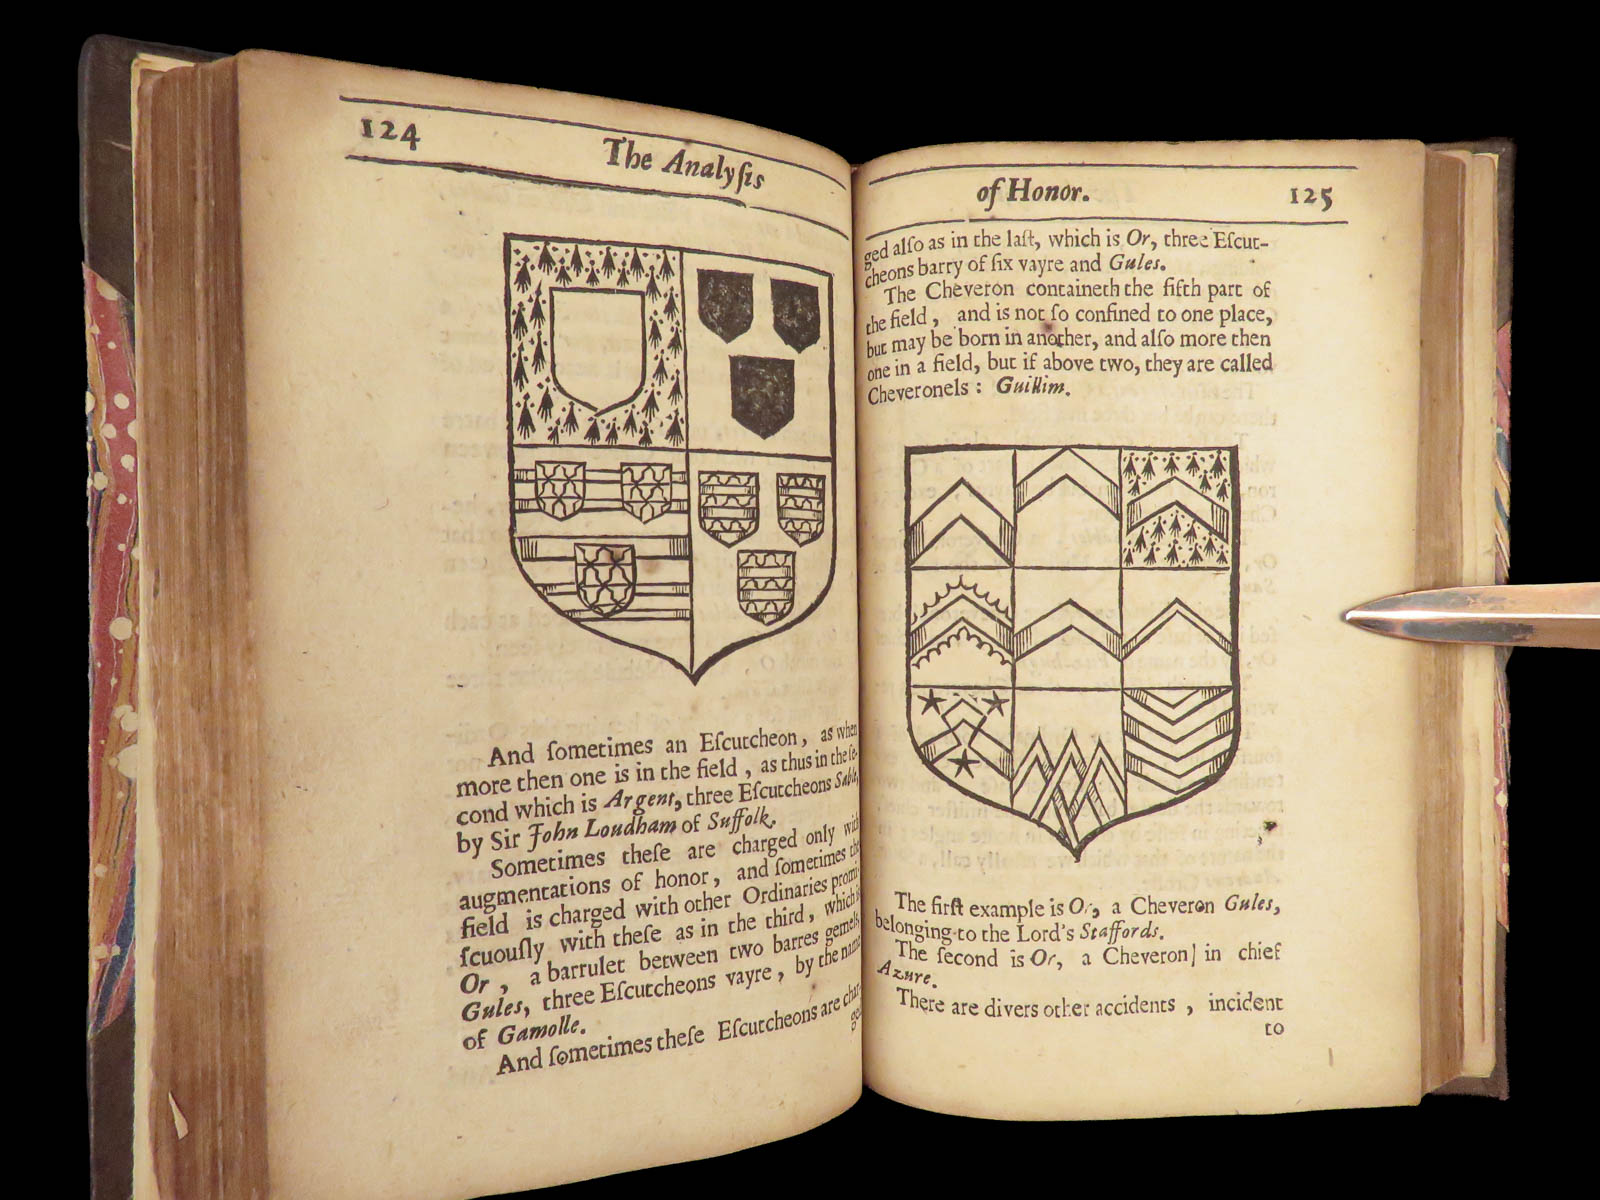 124
The Analyſis
And ſometimes an Eſcutcheon, as when
more then one is in the field, as thus in the ſe-
cond which is Argent, three Eſcutcheons Sable,
by Sir John Loudham of Suffolk.
Sometimes theſe are charged only with
augmentations of honor, and ſometimes the
field is charged with other Ordinaries promi-
ſcuouſly with theſe as in the third, which is
Or, a barrulet between two barres gemels,
Gules, three Eſcutcheons vayre, by the name
of Gamolle.
And ſometimes theſe Eſcutcheons are char-
ged
of Honor.
125
ged alſo as in the laſt, which is Or, three Eſcut-
cheons barry of ſix vayre and Gules.
The Cheveron containeth the fifth part of
the field, and is not ſo confined to one place,
but may be born in another, and alſo more then
one in a field, but if above two, they are called
Cheveronels: Guillim.
The firſt example is Or, a Cheveron Gules,
belonging to the Lord's Staffords.
The ſecond is Or, a Cheveron in chief
Azure.
There are divers other accidents, incident
to